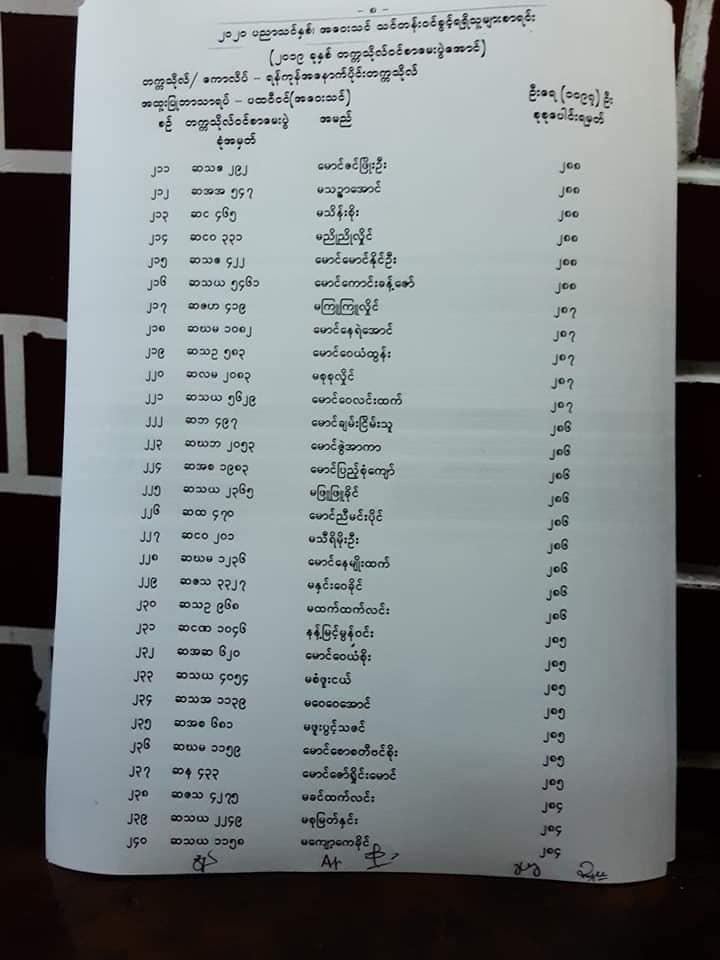 - ၈ -
၂၀၂၁ ပညာသင်နှစ်၊ အဝေးသင် သင်တန်းဝင်ခွင့်ရရှိသူများစာရင်း
(၂၀၁၉ ခုနှစ် တက္ကသိုလ်ဝင်စာမေးပွဲအောင်)
တက္ကသိုလ်/ ကောလိပ် – ရန်ကုန်အနောက်ပိုင်းတက္ကသိုလ်
အထူးပြုဘာသာရပ် – ပထဝီဝင်(အဝေးသင်) ဦးရေ (၁၁၉၃) ဦး
စဉ် တက္ကသိုလ်ဝင်စာမေးပွဲ အမည် စုစုပေါင်းရမှတ်
ခုံအမှတ်
၂၁၁ ဆသဇ ၂၉၂ မောင်ဇင်ဖြိုးဦး ၂၈၈
၂၁၂ ဆအအ ၅၄၇ မသဥ္ဇာအောင် ၂၈၈
၂၁၃ ဆင ၄၆၅ မသိန်းစိုး ၂၈၈
၂၁၄ ဆငဝ ၃၃၁ မညိုညိုလှိုင် ၂၈၈
၂၁၅ ဆသဇ ၄၂၂ မောင်မောင်နိုင်ဦး ၂၈၈
၂၁၆ ဆသယ ၅၄၆၁ မောင်ကောင်းခန့်ဇော် ၂၈၈
၂၁၇ ဆဇဟ ၄၁၉ မကြူကြူလှိုင် ၂၈၇
၂၁၈ ဆဃမ ၁၀၈၂ မောင်နေရဲအောင် ၂၈၇
၂၁၉ ဆသဥ ၅၈၃ မောင်ဝေယံထွန်း ၂၈၇
၂၂၀ ဆလမ ၂၀၈၃ မစုစုလှိုင် ၂၈၇
၂၂၁ ဆသယ ၅၆၂၉ မောင်ဝေလင်းထက် ၂၈၇
၂၂၂ ဆဘ ၄၉၇ မောင်ချမ်းငြိမ်းသူ ၂၈၆
၂၂၃ ဆဃဘ ၂၀၅၃ မောင်ဖွဲအာကာ ၂၈၆
၂၂၄ ဆအစ ၁၉၈၃ မောင်ပြည့်စုံကျော် ၂၈၆
၂၂၅ ဆသယ ၂၃၆၅ မဖြူဖြူခိုင် ၂၈၆
၂၂၆ ဆထ ၄၇၀ မောင်ညီမင်းပိုင် ၂၈၆
၂၂၇ ဆငဝ ၂၀၁ မသီရိမိုးဦး ၂၈၆
၂၂၈ ဆဃမ ၁၂၃၆ မောင်နေမျိုးထက် ၂၈၆
၂၂၉ ဆဇသ ၃၃၂၇ မနှင်းဝေခိုင် ၂၈၆
၂၃၀ ဆသဥ ၉၆၈ မထက်ထက်လင်း ၂၈၆
၂၃၁ ဆငဏ ၁၀၄၆ နန့်မြင့်မွန်ဝင်း ၂၈၅
၂၃၂ ဆအဆ ၆၂၀ မောင်ဝေယံစိုး ၂၈၅
၂၃၃ ဆသယ ၄၀၅၄ မစံဖူးငယ် ၂၈၅
၂၃၄ ဆသအ ၁၁၃၉ မဝေဝေအောင် ၂၈၅
၂၃၅ ဆအစ ၆၈၁ မဖူးပွင့်သဇင် ၂၈၅
၂၃၆ ဆဃမ ၁၁၅၉ မောင်စောစတီဗင်စိုး ၂၈၅
၂၃၇ ဆန ၄၃၃ မောင်ဇော်ရှိုင်းမောင် ၂၈၅
၂၃၈ ဆဇသ ၄၂၇၅ မခင်ထက်လင်း ၂၈၄
၂၃၉ ဆသယ ၂၂၄၉ မစုမြတ်နှင်း ၂၈၄
၂၄၀ ဆသယ ၁၁၅၈ မကျော့ကေခိုင် ၂၈၄